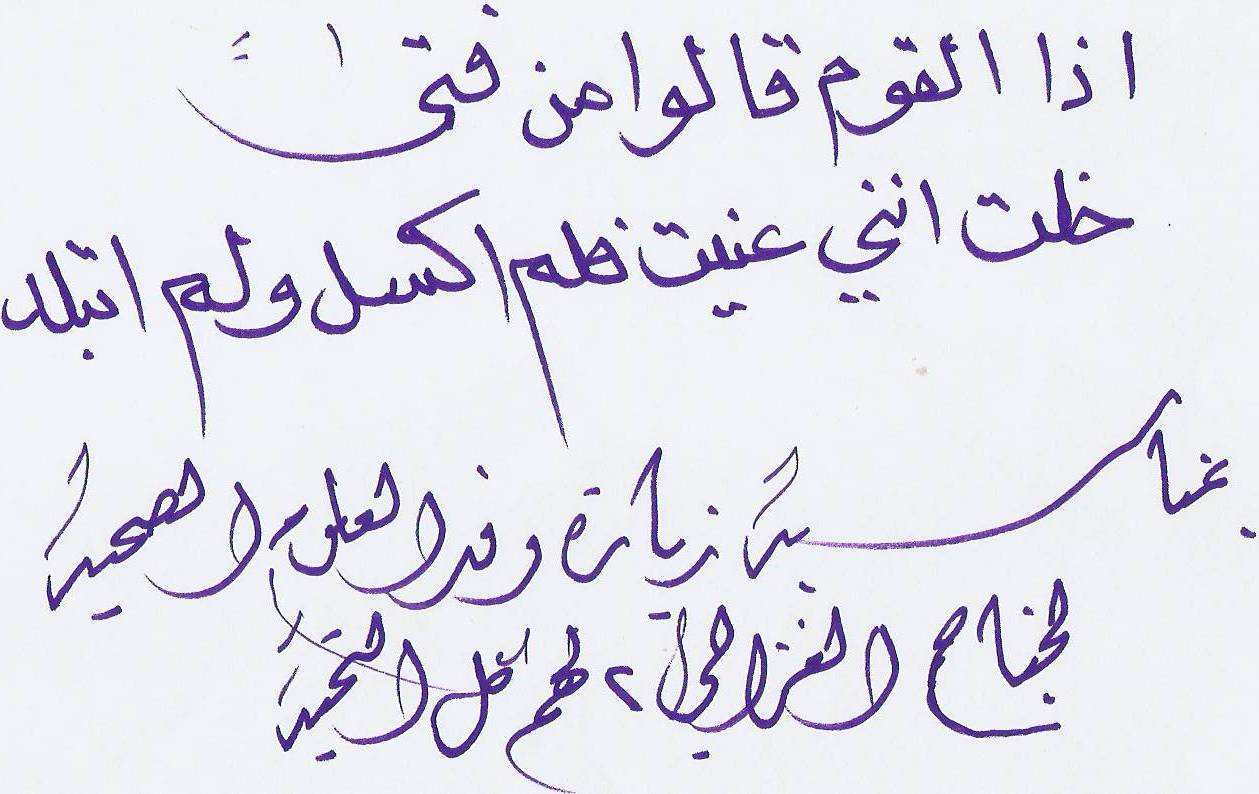 اذا القوم قالوا من فتىً
خلت انني عنيت فلم اكسل ولم اتبلد
بمناسبة زيارة وفد العلوم الصحية
لجناح الغزالي ٢ لهم كل التحية